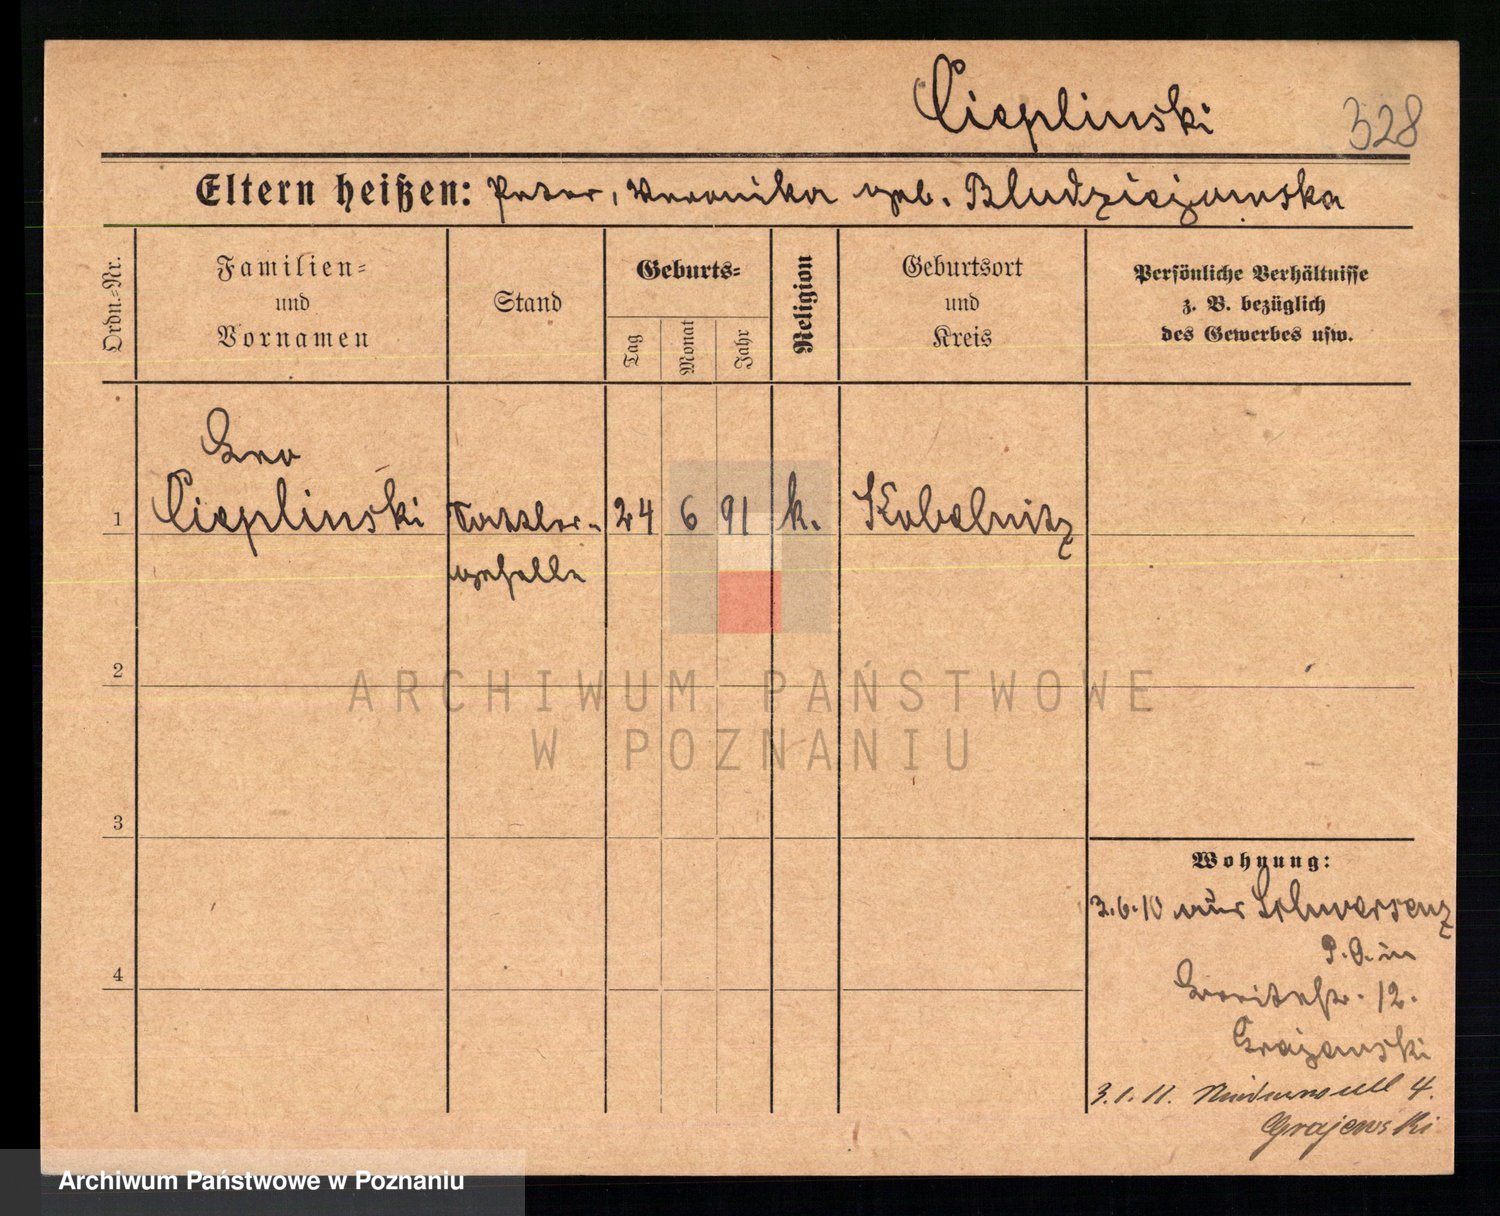 Cieplinski 328
Eltern heißen: Peter, Veronika geb. Bludzicjewska
Ordn.-Nr.
Familien-
und
Vornamen
Stand
Geburts-
Tag
Monat
Jahr
Religion
Geburtsort
und
Kreis
Persönliche Verhältnisse
z. B. bezüglich
des Gewerbes usw.
Leo
1 Cieplinski Sattler- 24 6 91 k. Kobelnitz
geselle
2
3
4
Wohnung:
3.6.10 aus Schwersenz
P.O. in
Breitestr. 12.
Grajewski
3.1.11. Niederwall 4.
Grajewski
ARCHIWUM PAŃSTWOWE
W POZNANIU
Archiwum Państwowe w Poznaniu